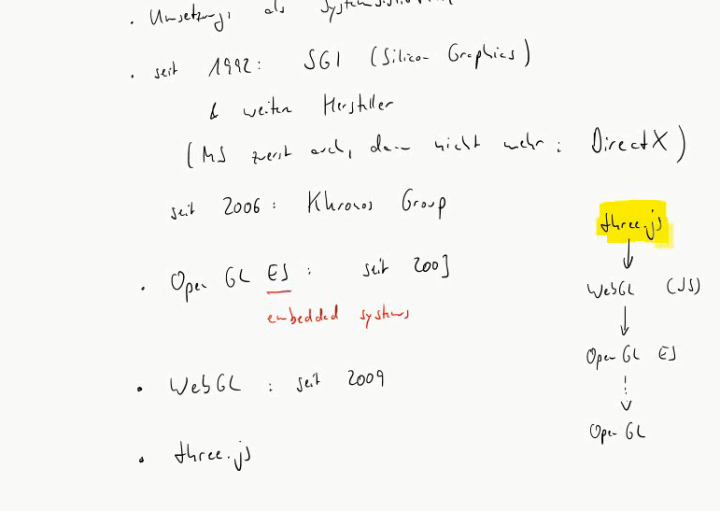 · Umsetzung: als
· seit 1992: SGI (Silicon Graphics)
& weitere Hersteller
(MS zuerst auch, dann nicht mehr: DirectX)
seit 2006: Khronos Group
· Open GL ES: seit 2003
embedded systems
· WebGL: seit 2009
· three.js
three.js
WebGL (JS)
Open GL ES
Open GL